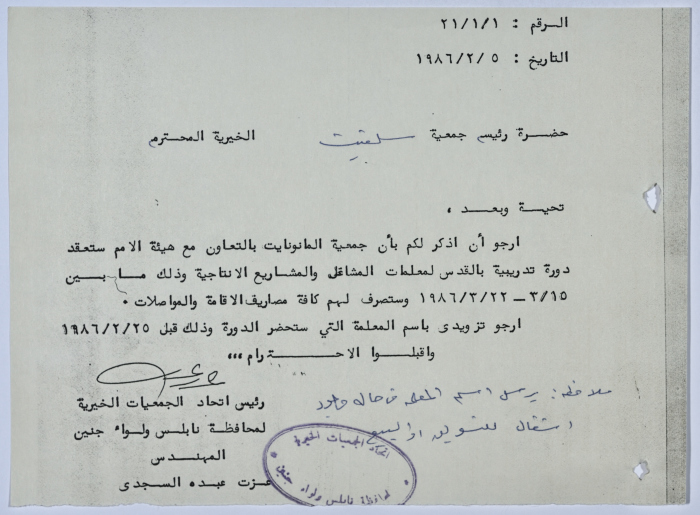 الرقم : ٢١/١/١
التاريخ : ١٩٨٦/٢/٥
حضرة رئيس جمعية سلفيت الخيرية المحترم
تحية وبعد ،
ارجو أن اذكر لكم بأن جمعية المانونايت بالتعاون مع هيئة الامم ستعقد
دورة تدريبية بالقدس لمعلمات المشاغل والمشاريع الانتاجية وذلك ما بين
٣/١٥ – ١٩٨٦/٣/٢٢ وستصرف لهم كافة مصاريف الاقامة والمواصلات .
ارجو تزويدى باسم المعلمة التي ستحضر الدورة وذلك قبل ١٩٨٦/٢/٢٥
واقبلوا الاحترام ،،،
ملاحظة: يرسل اسم المعلمة في حالة وجود
اشغال للتسويق او البيع
رئيس اتحاد الجمعيات الخيرية
لمحافظة نابلس ولواء جنين
المهندس
عزت عبده السجدى
اتحاد الجمعيات الخيرية
لمحافظة نابلس ولواء جنين